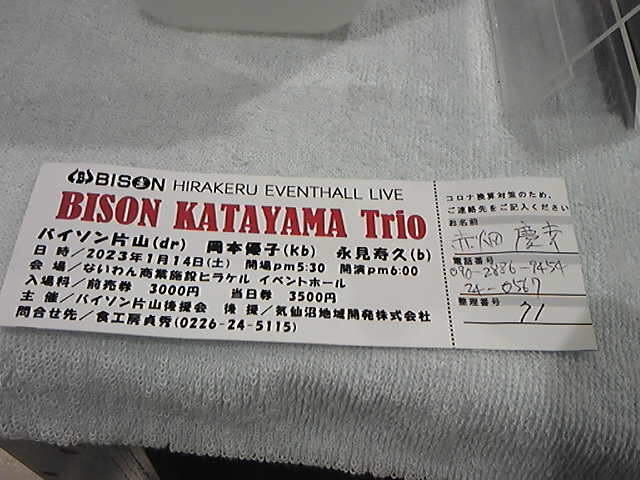 BISON HIRAKERU EVENTHALL LIVE
BISON KATAYAMA Trio
バイソン片山(dr) 岡本優子(kb) 永見寿久(b)
日 時/2023年1月14日(土) 開場pm5:30 開演pm6:00
会 場/ないわん商業施設ヒラケル イベントホール
入場料/前売券 3000円 当日券 3500円
主 催/バイソン片山後援会 後 援/気仙沼地域開発株式会社
問合せ先/食工房貞秀(0226-24-5115)
コロナ換算対策のため、
ご連絡先をご記入ください
お名前
電話番号
090-2886-7454
24-0567
整理番号
71